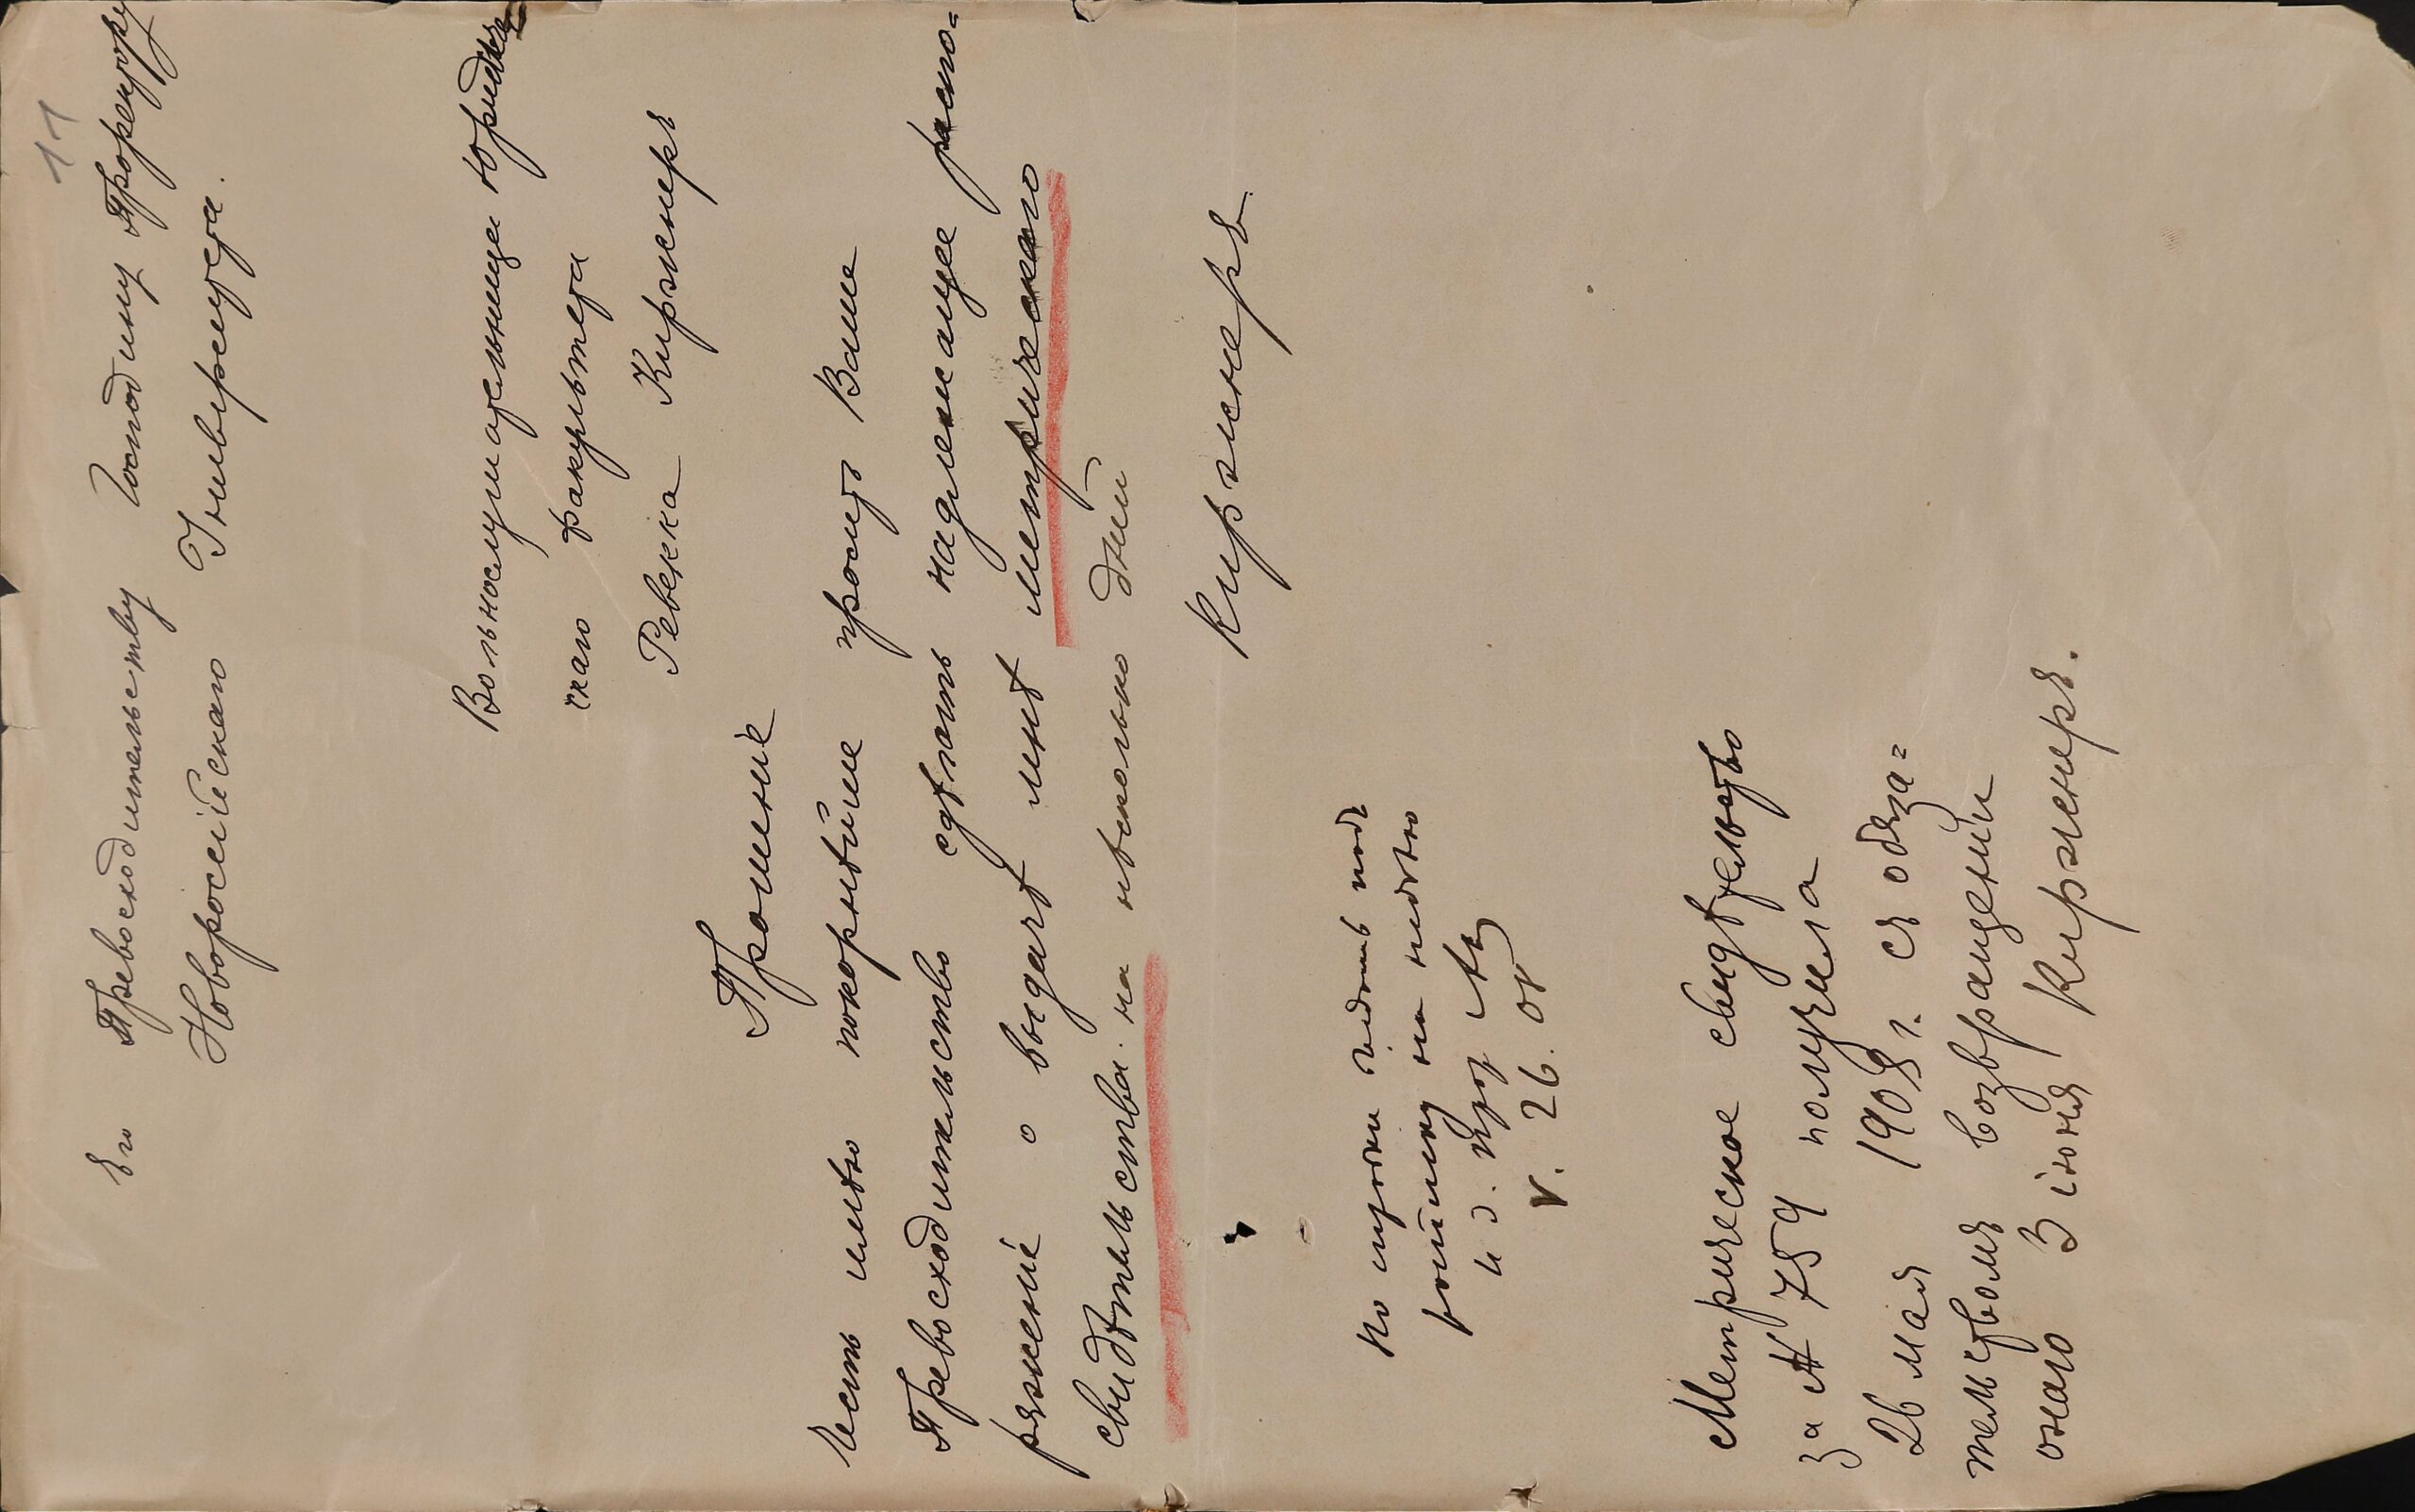 11
Его Превосходительству Господину Проректору
Новороссійскаго Университета.
Вольнослушательница юридиче
скаго факультета
Ревекка Киржнеръ
Прошеніе
Честь имѣю покорнѣйше просить Ваше
Превосходительство сдѣлать надлежащее распо=
ряженіе о выдачѣ мнѣ метрическаго
свидѣтельства на нѣсколько дней
Киржнеръ
выдать подъ
росписку на недѣлю
и. д. Пр
V. 26. 08
Метрическое свидѣтельство
за № 759 получила
26 мая 1908 г. съ обяза=
тельствомъ возвращенія
онаго 3 іюня Киржнеръ.